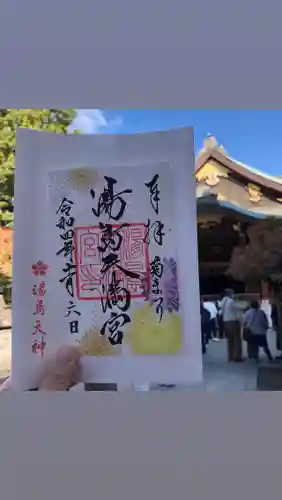 奉拝
菊まつり
湯島天満宮
令和四年十一月六日
湯島天神